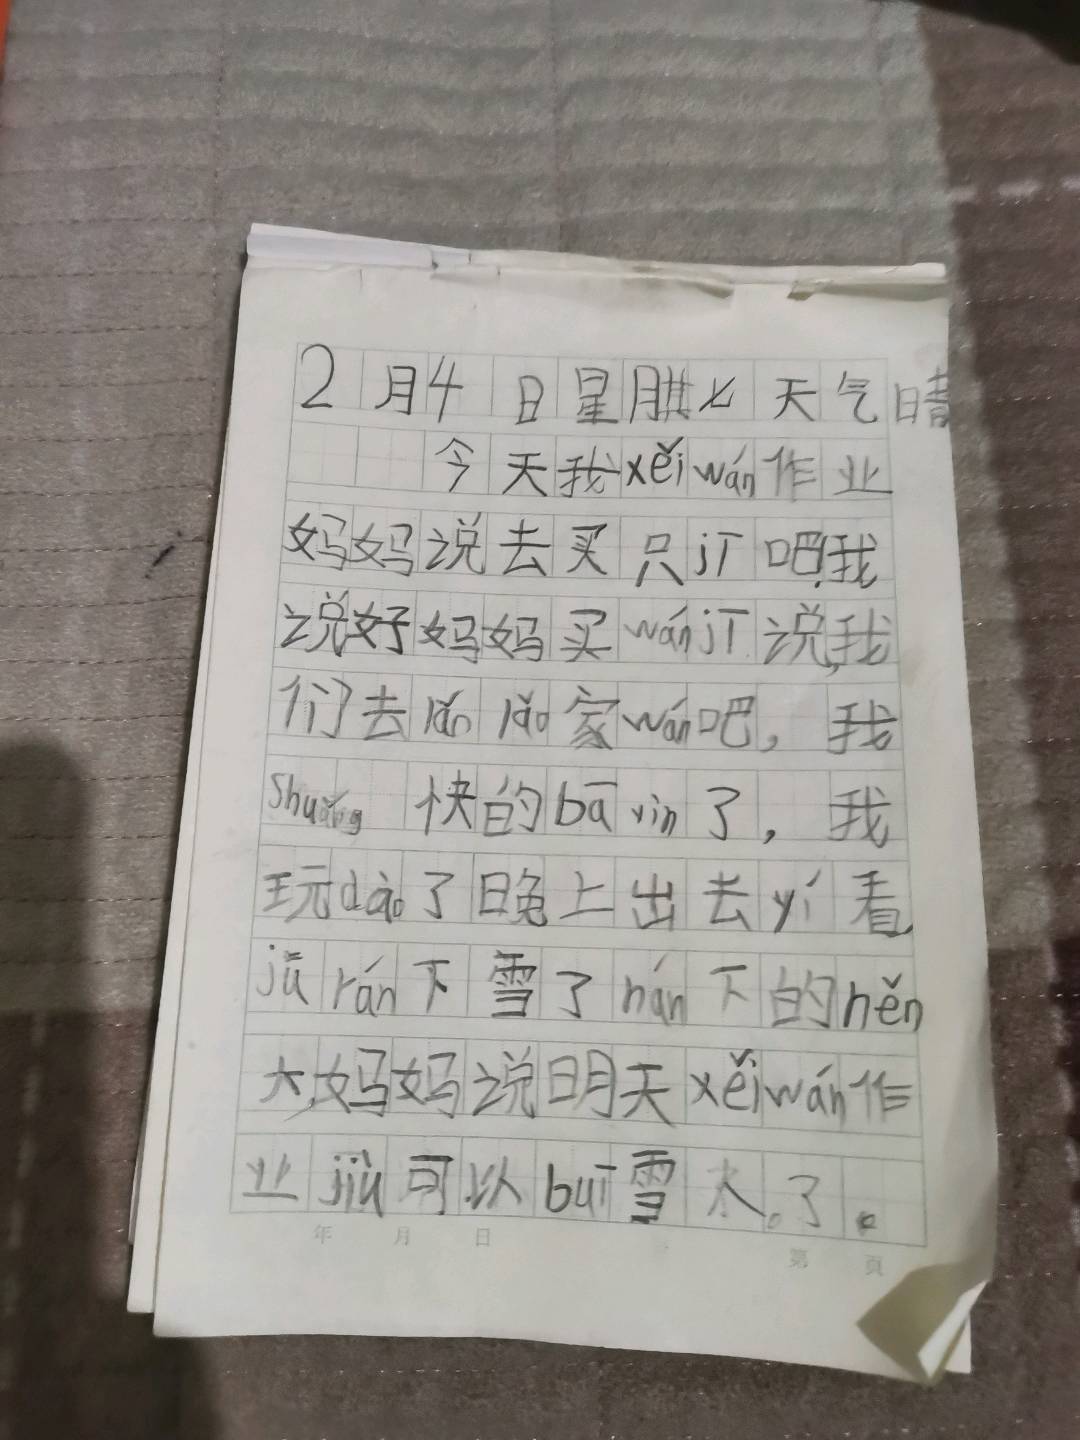 2月4日星期七天气晴
今天我xěiwán作业
妈妈说去买只jī吧,我
说好妈妈买wánjī说,我
们去lǎolǎo家wán吧，我
shuǎng快的bāyin了，我
玩dào了晚上出去yí看
jūrán下雪了nán下的hěn
大,妈妈说明天xěiwán作
业jiù可以buī雪
了。
年 月 日 第 頁